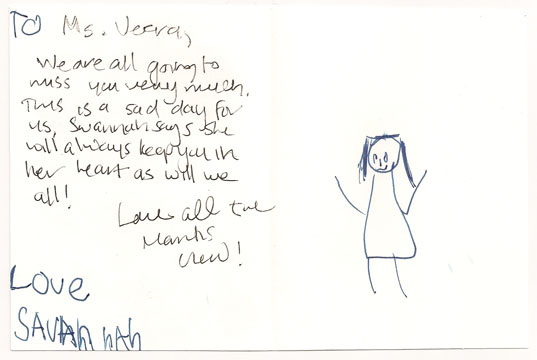 TO Ms. Veera,
We are all going to
miss you very much.
This is a sad day for
us, Savannah says she
will always keep you in
her heart as will we
all!
Love all the
Mantis
crew!
Love
SAVAhhAh